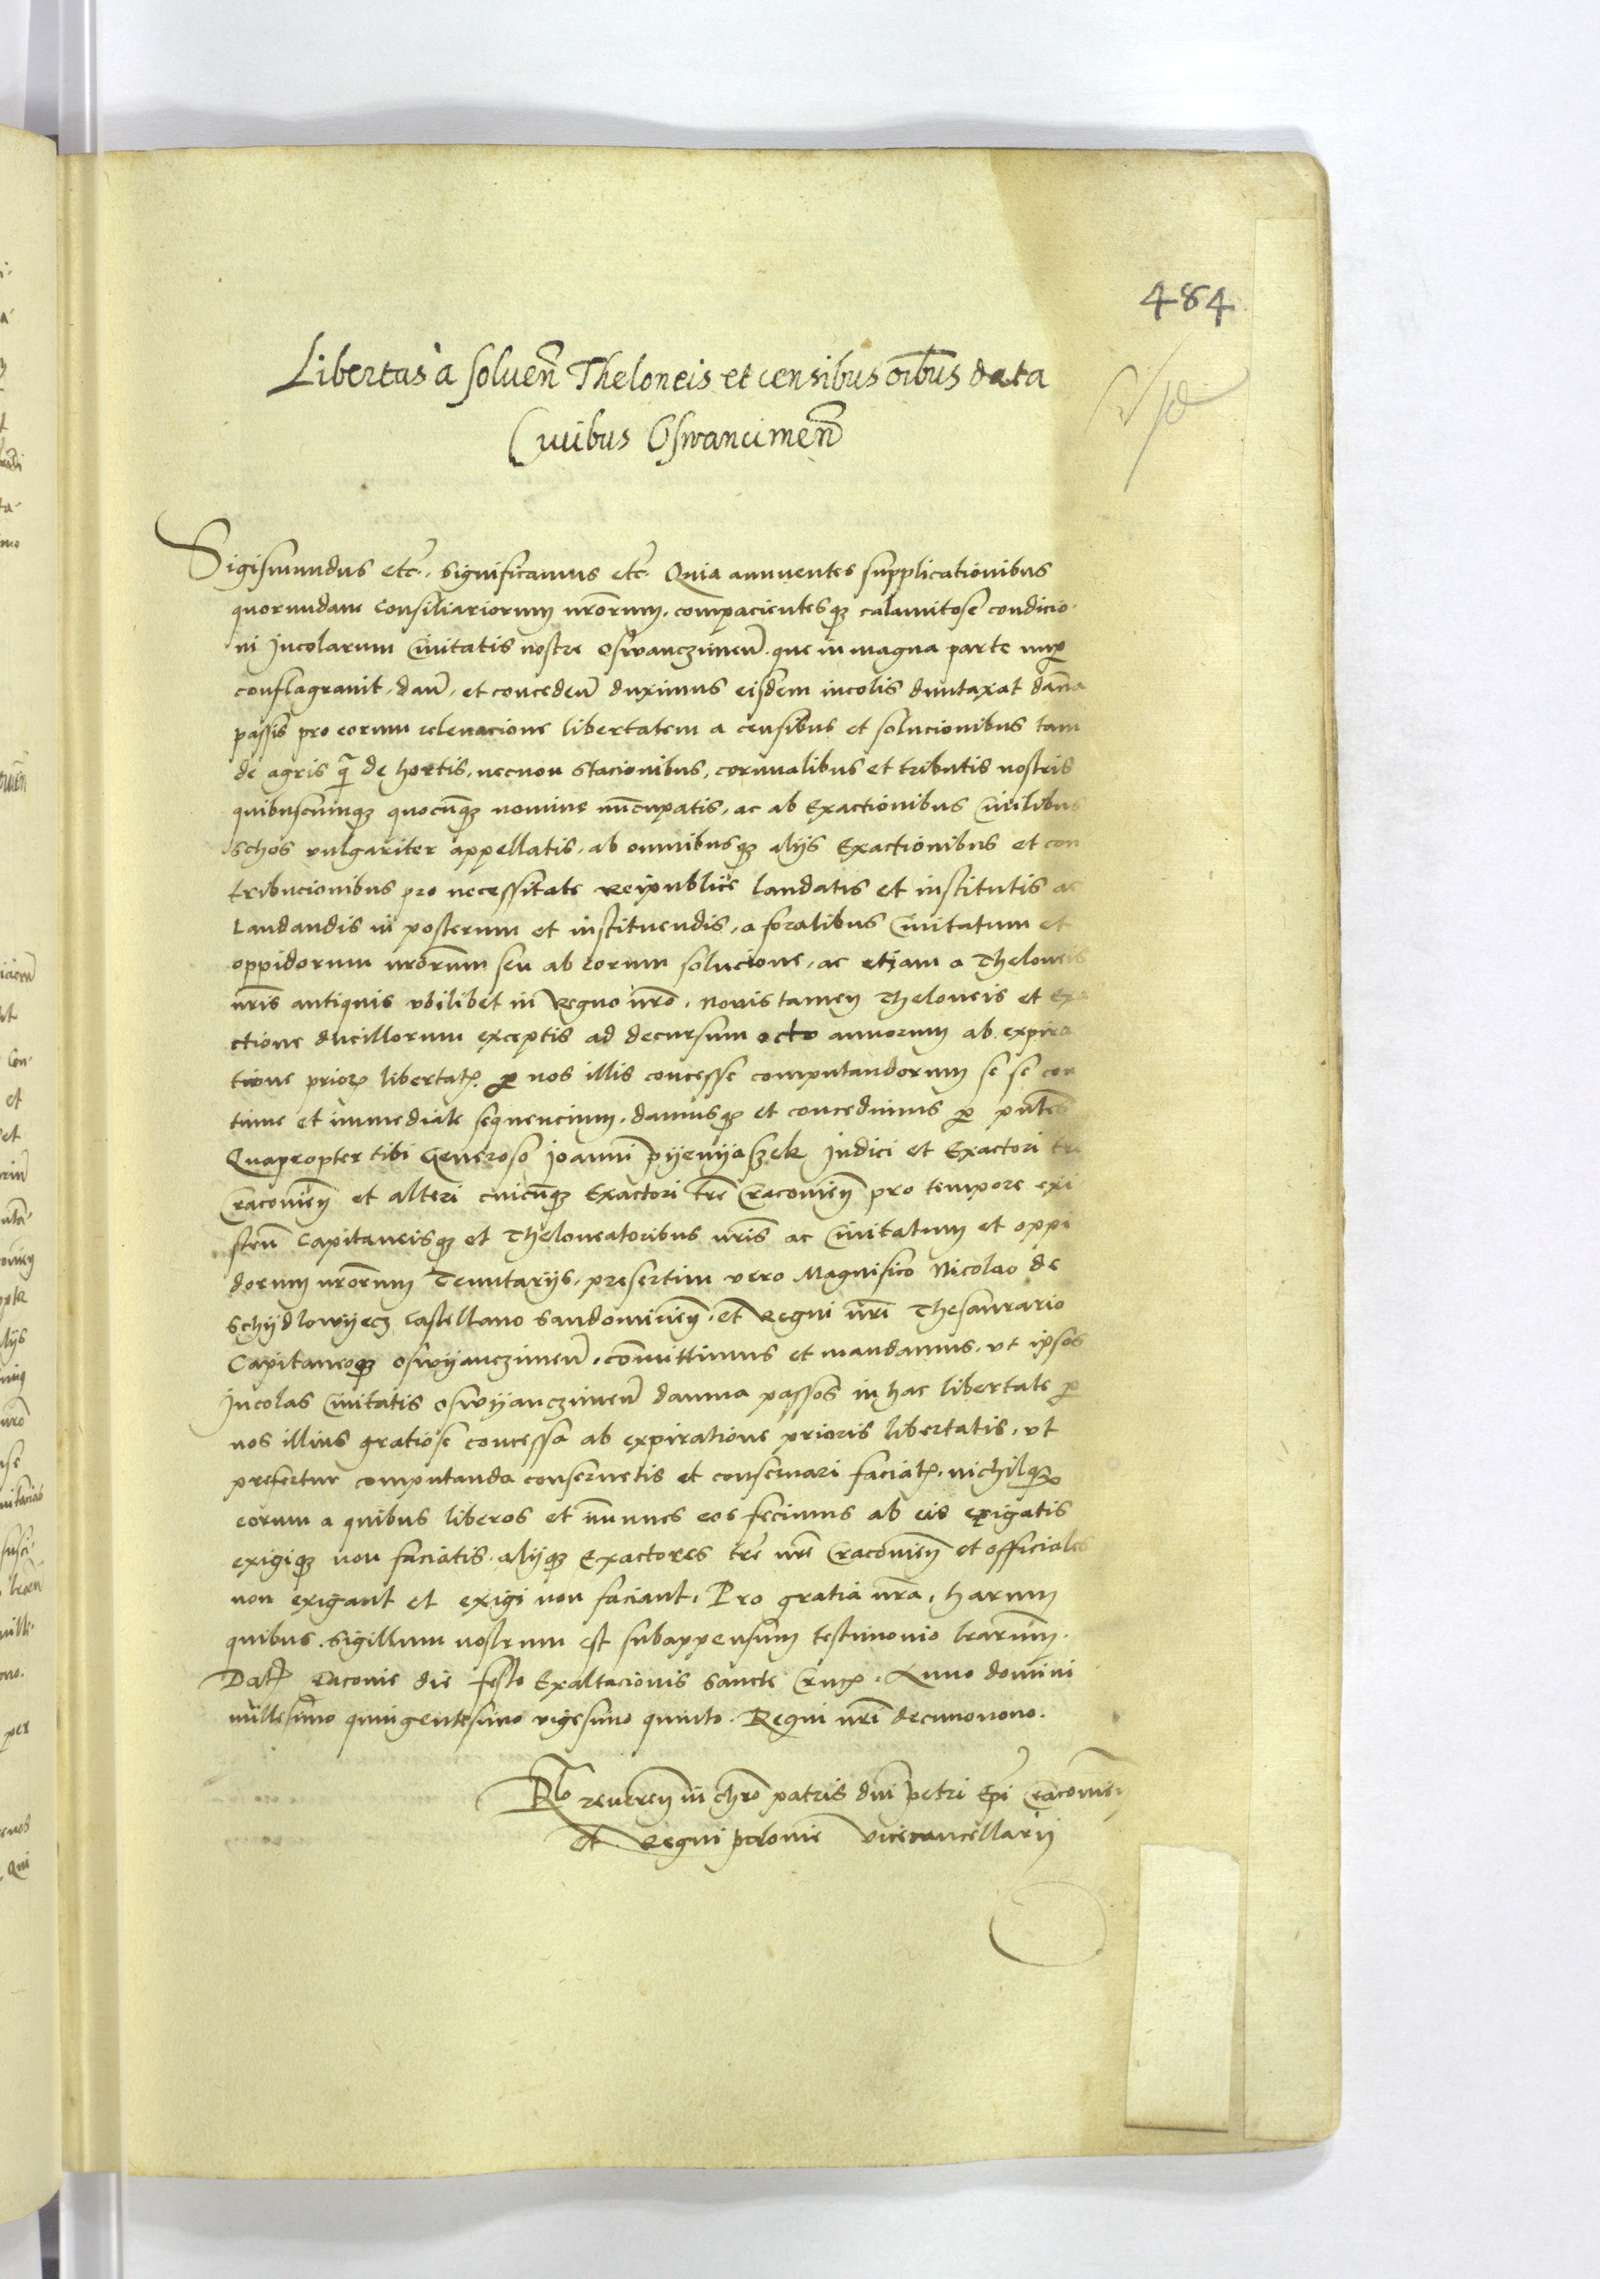 484
Libertas a soluen̄ Theloneis et censibus oībus data
Ciuibus Oswancimen̄
Sigismundus etc. significamus etc. Quia annuentes supplicationibus
quorundam consiliariorum nr̄orum, compacientesq3 calamitose condicio-
ni Incolarum Ciuitatis nostre Oswanczimen̄. que in magna parte nup̲
conflagrauit, dan̄, et conceden̄ duximus eisdem incolis duntaxat dāna
passis pro eorum releuacione libertatem a censibus et solucionibus tam
de agris q̄ de hortis, necnon stacionibus, cornualibus et tributis nostris
quibuscumq3 quocūq3 nomine nūcupatis, ac ab Exactionibus Ciuilibus
schos vulgariter appellatis, ab omnibusq3 alijs Exactionibus et con
tribucionibus pro necessitate Reipublice laudatis et institutis ac
Laudandis in posterum et instituendis, a foralibus Ciuitatum et
oppidorum nr̄orum seu ab eorum solucione, ac etiam a Theloneis
nr̄is antiquis vbilibet in Regno nr̄o. Nouis tamen Theloneis et Exa
ctione ducillorum exceptis ad decursum octo annorum ab expira
tione prior̄ libertat̄. p̲ nos illis concesse computandorum se se con
tinue et immediate sequencium. damusq3 et concedimus p̲ pn̄tes
Quapropter tibi Generoso Joanni pyenyaszek Judici et Exactori tre
Cracouien̄ et alteri cuicūq3 Exactori tr̄e Cracouien̄ pro tempore exi
sten̄ Capitaneisq3 et Theloneatoribus nr̄is ac Ciuitatum et oppi
dorum nr̄orum Tenutarijs, presertim vero Magnifico Nicolao de
Schydlowyecz Castellano Sandomirien̄. et Regni nr̄i Thesaurario
Capitaneoq3 Oswyanczimen̄. com̄ittimus et mandamus. vt ipsos
Incolas Ciuitatis Oswyanczimen̄ damna passos in hac libertate p̲
nos illius gratiose concessa ab expiratione prioris libertatis, vt
prefertur computanda conseruetis et conseruari faciat̄. nichilq3
eorum a quibus liberos et im̄unes eos fecimus ab eis exigatis
exigiq3 non faciatis. alijq3 Exactores tr̄e nr̄e Cracouien̄ et officiales
non exigant et exigi non faciant. Pro gratia nr̄a. harum
quibus sigillum nostrum est subappensum testimonio lr̄arum.
Dat̄ Cracouie die festo Exaltacionis Sancte Cruc̄. Anno domini
millesimo quingentesimo vigesimo quinto. Regni nr̄i decimonono.
Rlo̅ reueren̄ in chr̄o patris dn̄i petri Ep̄i Cracouien̄
et Regni polonie Vicecancellarij